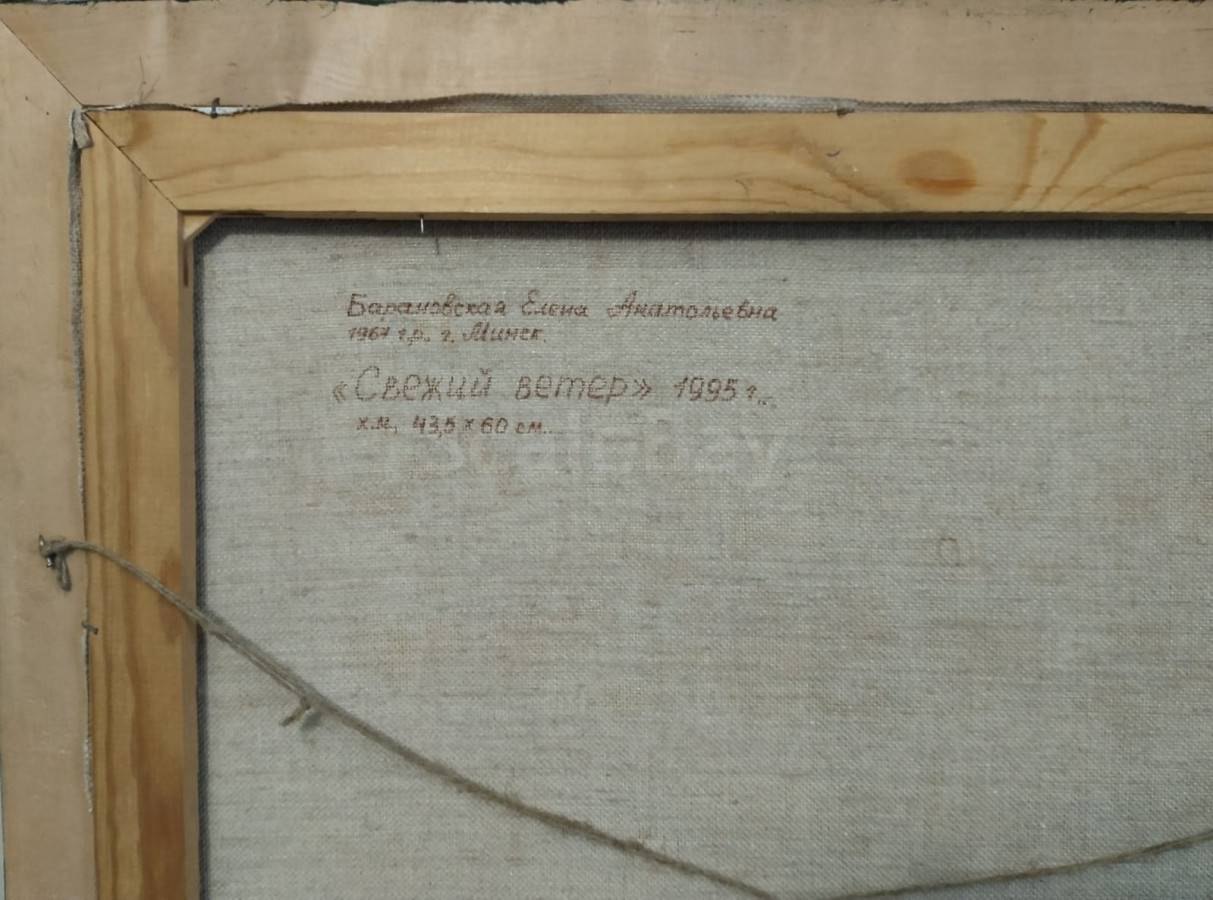 Барановская Елена Анатольевна
1967 г.р. г. Минск.
«Свежий ветер» 1995 г.
х.м, 43,5 х 60 см.